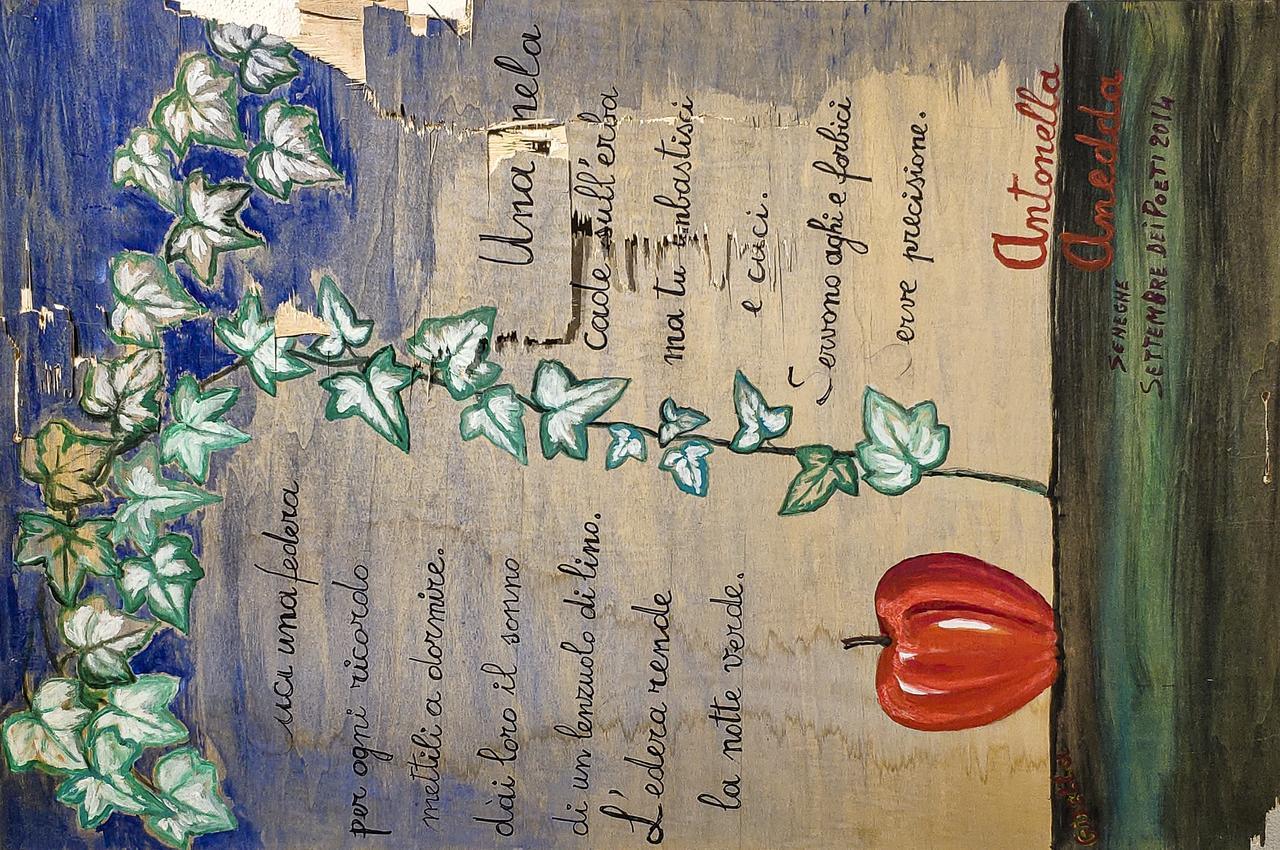 Cuci una federa
per ogni ricordo
mettili a dormire.
dài loro il sonno
di un lenzuolo di lino.
L'edera rende
la notte verde.
Una mela
cade sull'erba
ma tu imbastisci
e cuci.
Servono aghi e forbici
Serve precisione.
Antonella
Anedda
SENEGHE
SETTEMBRE DEI POETI 2014